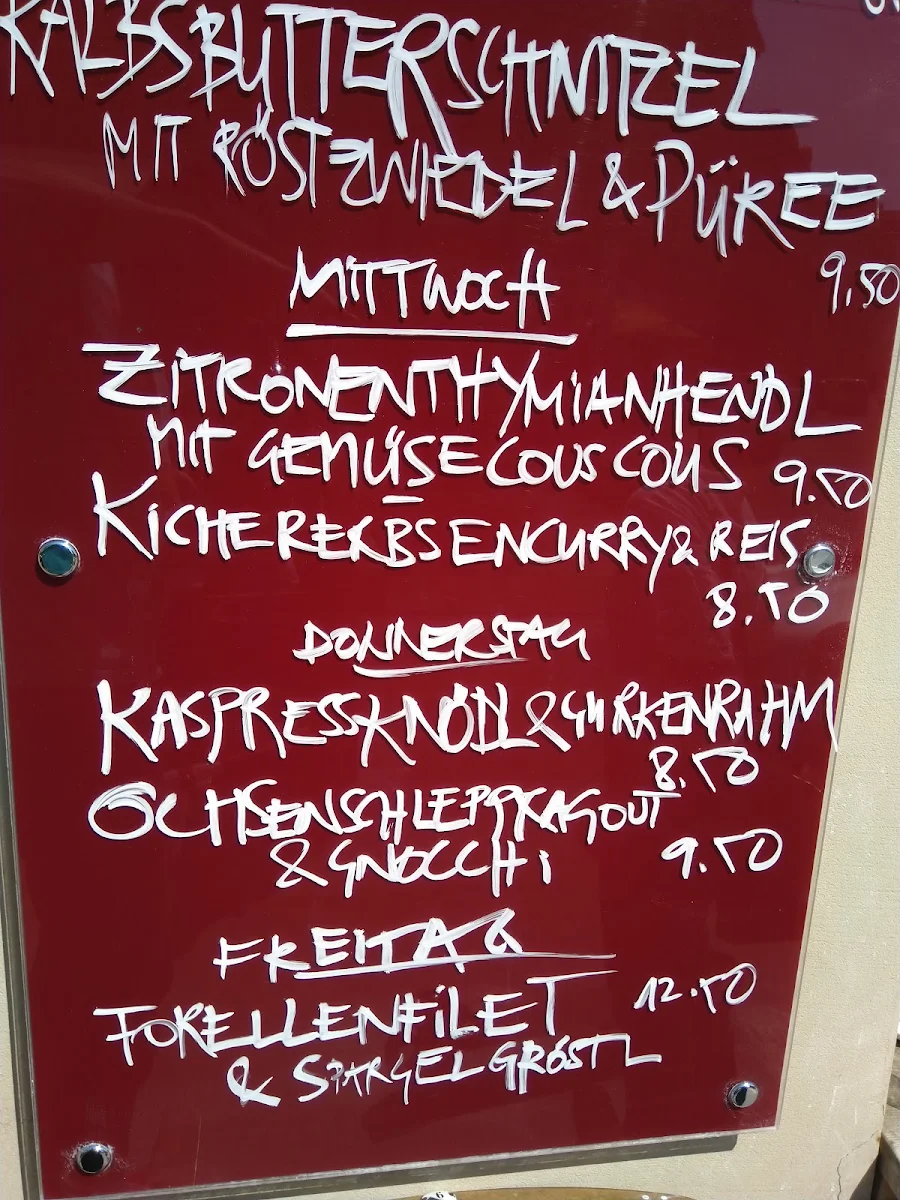 KALBSBUTTERSCHNITZEL
MIT RÖSTZWIEBEL & PÜREE
9.50
MITTWOCH
ZITRONENTHYMIANHENDL
MIT GEMÜSECOUSCOUS 9.50
KICHERERBSENCURRY & REIS
8.50
DONNERSTAG
KASPRESSKNÖDL & GURKENRAHM
8.50
OCHSENSCHLEPPRAGOUT
& GNOCCHI 9.50
FREITAG
FORELLENFILET 12.50
& SPARGELGRÖSTL